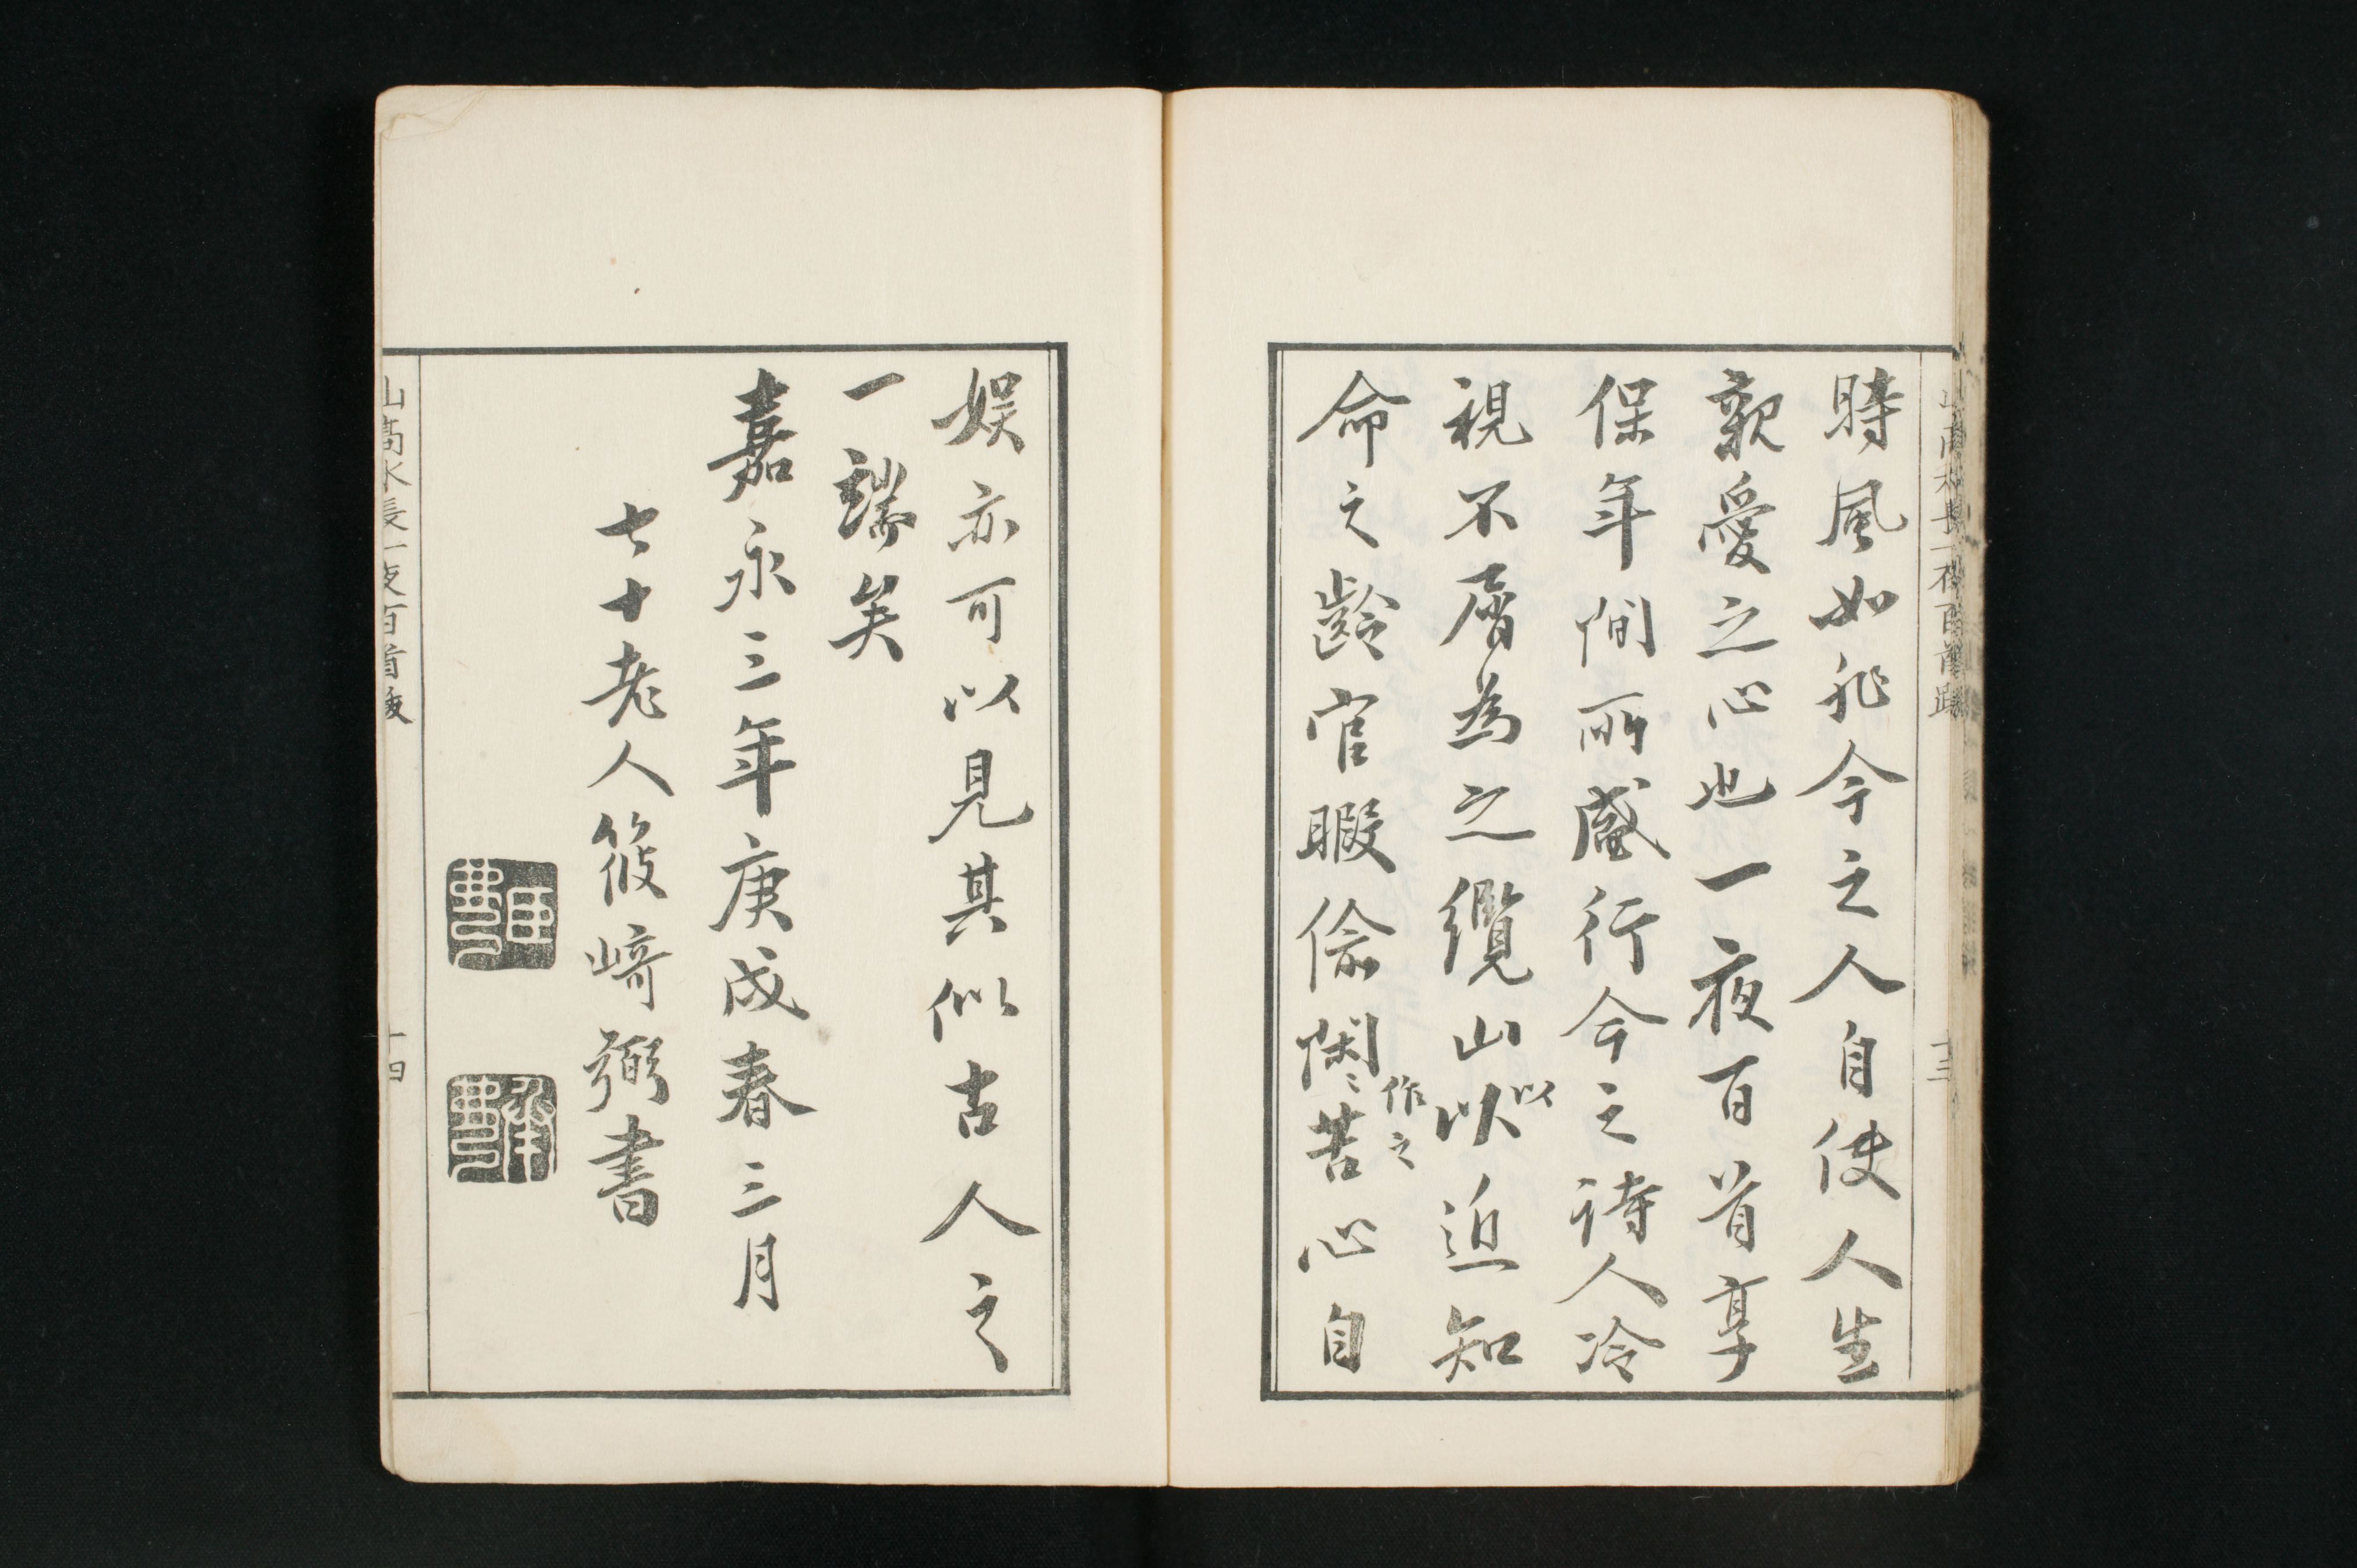 時風如非今之人自使人生
親愛之心也一夜百首享
保年間所盛行今之詩人冷
視不屑為之纜山以以近知
命之齡官暇偷閑作之苦心自
娯亦可以見其似古人之
一端矣
嘉永三年庚戌春三月
七十老人筱﨑弼書
山高水長一夜百首跋
十四